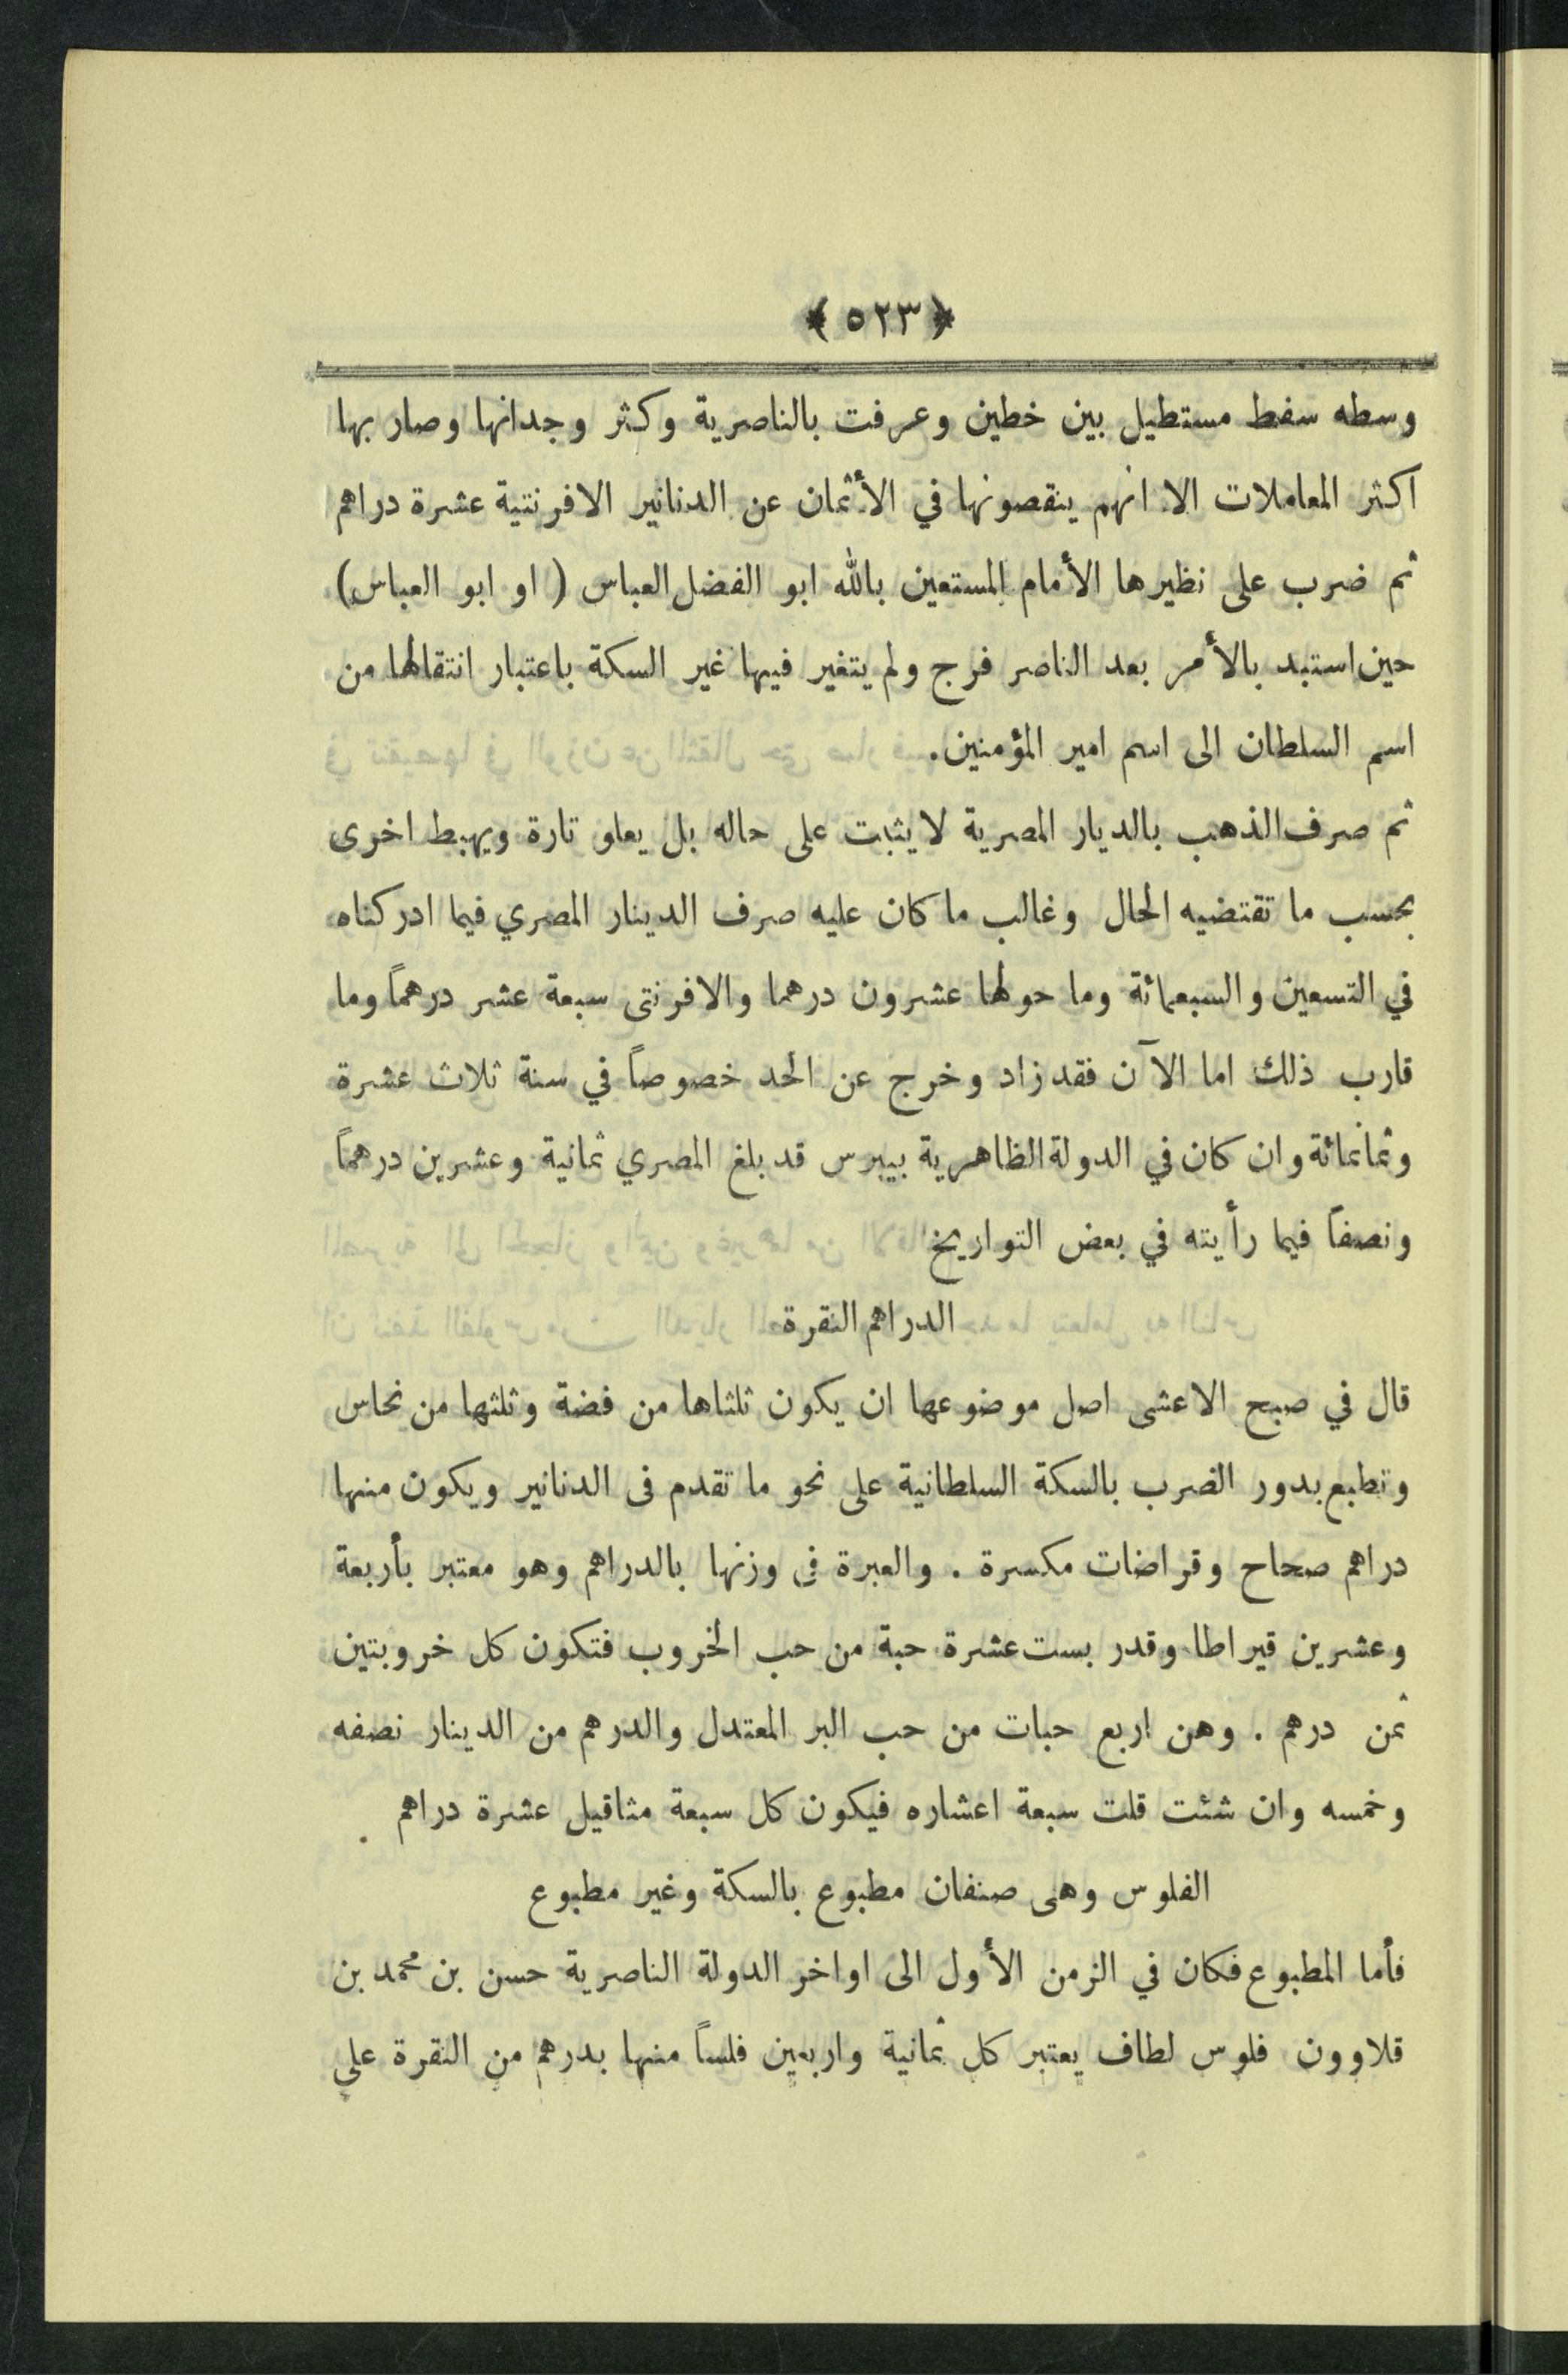 ﴿ ٥٢٣ ﴾
وسطه سفط مستطيل بين خطين وعرفت بالناصرية وكثر وجدانها وصار بها
اكثر المعاملات الا انهم ينقصونها في الأثمان عن الدنانير الافرنتية عشرة دراهم
ثم ضرب على نظيرها الأمام المستعين بالله ابو الفضل العباس ( او ابو العباس)
حين استبد بالأمر بعد الناصر فرج ولم يتغير فيها غير السكة باعتبار انتقالها من
اسم السلطان الى اسم امير المؤمنين.
ثم صرف الذهب بالديار المصرية لا يثبت على حاله بل يعلو تارة ويهبط اخرى
بحسب ما تقتضيه الحال وغالب ما كان عليه صرف الدينار المصري فيما ادركناه
في التسعين والسبعمائة وما حولها عشرون درهما والافرنتى سبعة عشر درهماً وما
قارب ذلك اما الآن فقد زاد وخرج عن الحد خصوصاً في سنة ثلاث عشرة
وثمانمائة وان كان في الدولة الظاهرية بيبرس قد بلغ المصري ثمانية وعشرين درهماً
ونصفاً فيما رأيته في بعض التواريخ
الدراهم النقرة
قال في صبح الاعشى اصل موضوعها ان يكون ثلثاها من فضة وثلثها من نحاس
وتطبع بدور الضرب بالسكة السلطانية على نحو ما تقدم فى الدنانير ويكون منها
دراهم صحاح وقراضات مكسرة . والعبرة فى وزنها بالدراهم وهو معتبر بأربعة
وعشرين قيراطا وقدر بست عشرة حبة من حب الخروب فتكون كل خروبتين
ثمن درهم . وهن اربع حبات من حب البر المعتدل والدرهم من الدينار نصفه
وخمسه وان شئت قلت سبعة اعشاره فيكون كل سبعة مثاقيل عشرة دراهم .
الفلوس وهى صنفان مطبوع بالسكة وغير مطبوع
فأما المطبوع فكان في الزمن الأول الى اواخر الدولة الناصرية حسن بن محمد بن
قلاوون فلوس لطاف يعتبر كل ثمانية واربعين فلساً منها بدرهم من النقرة على